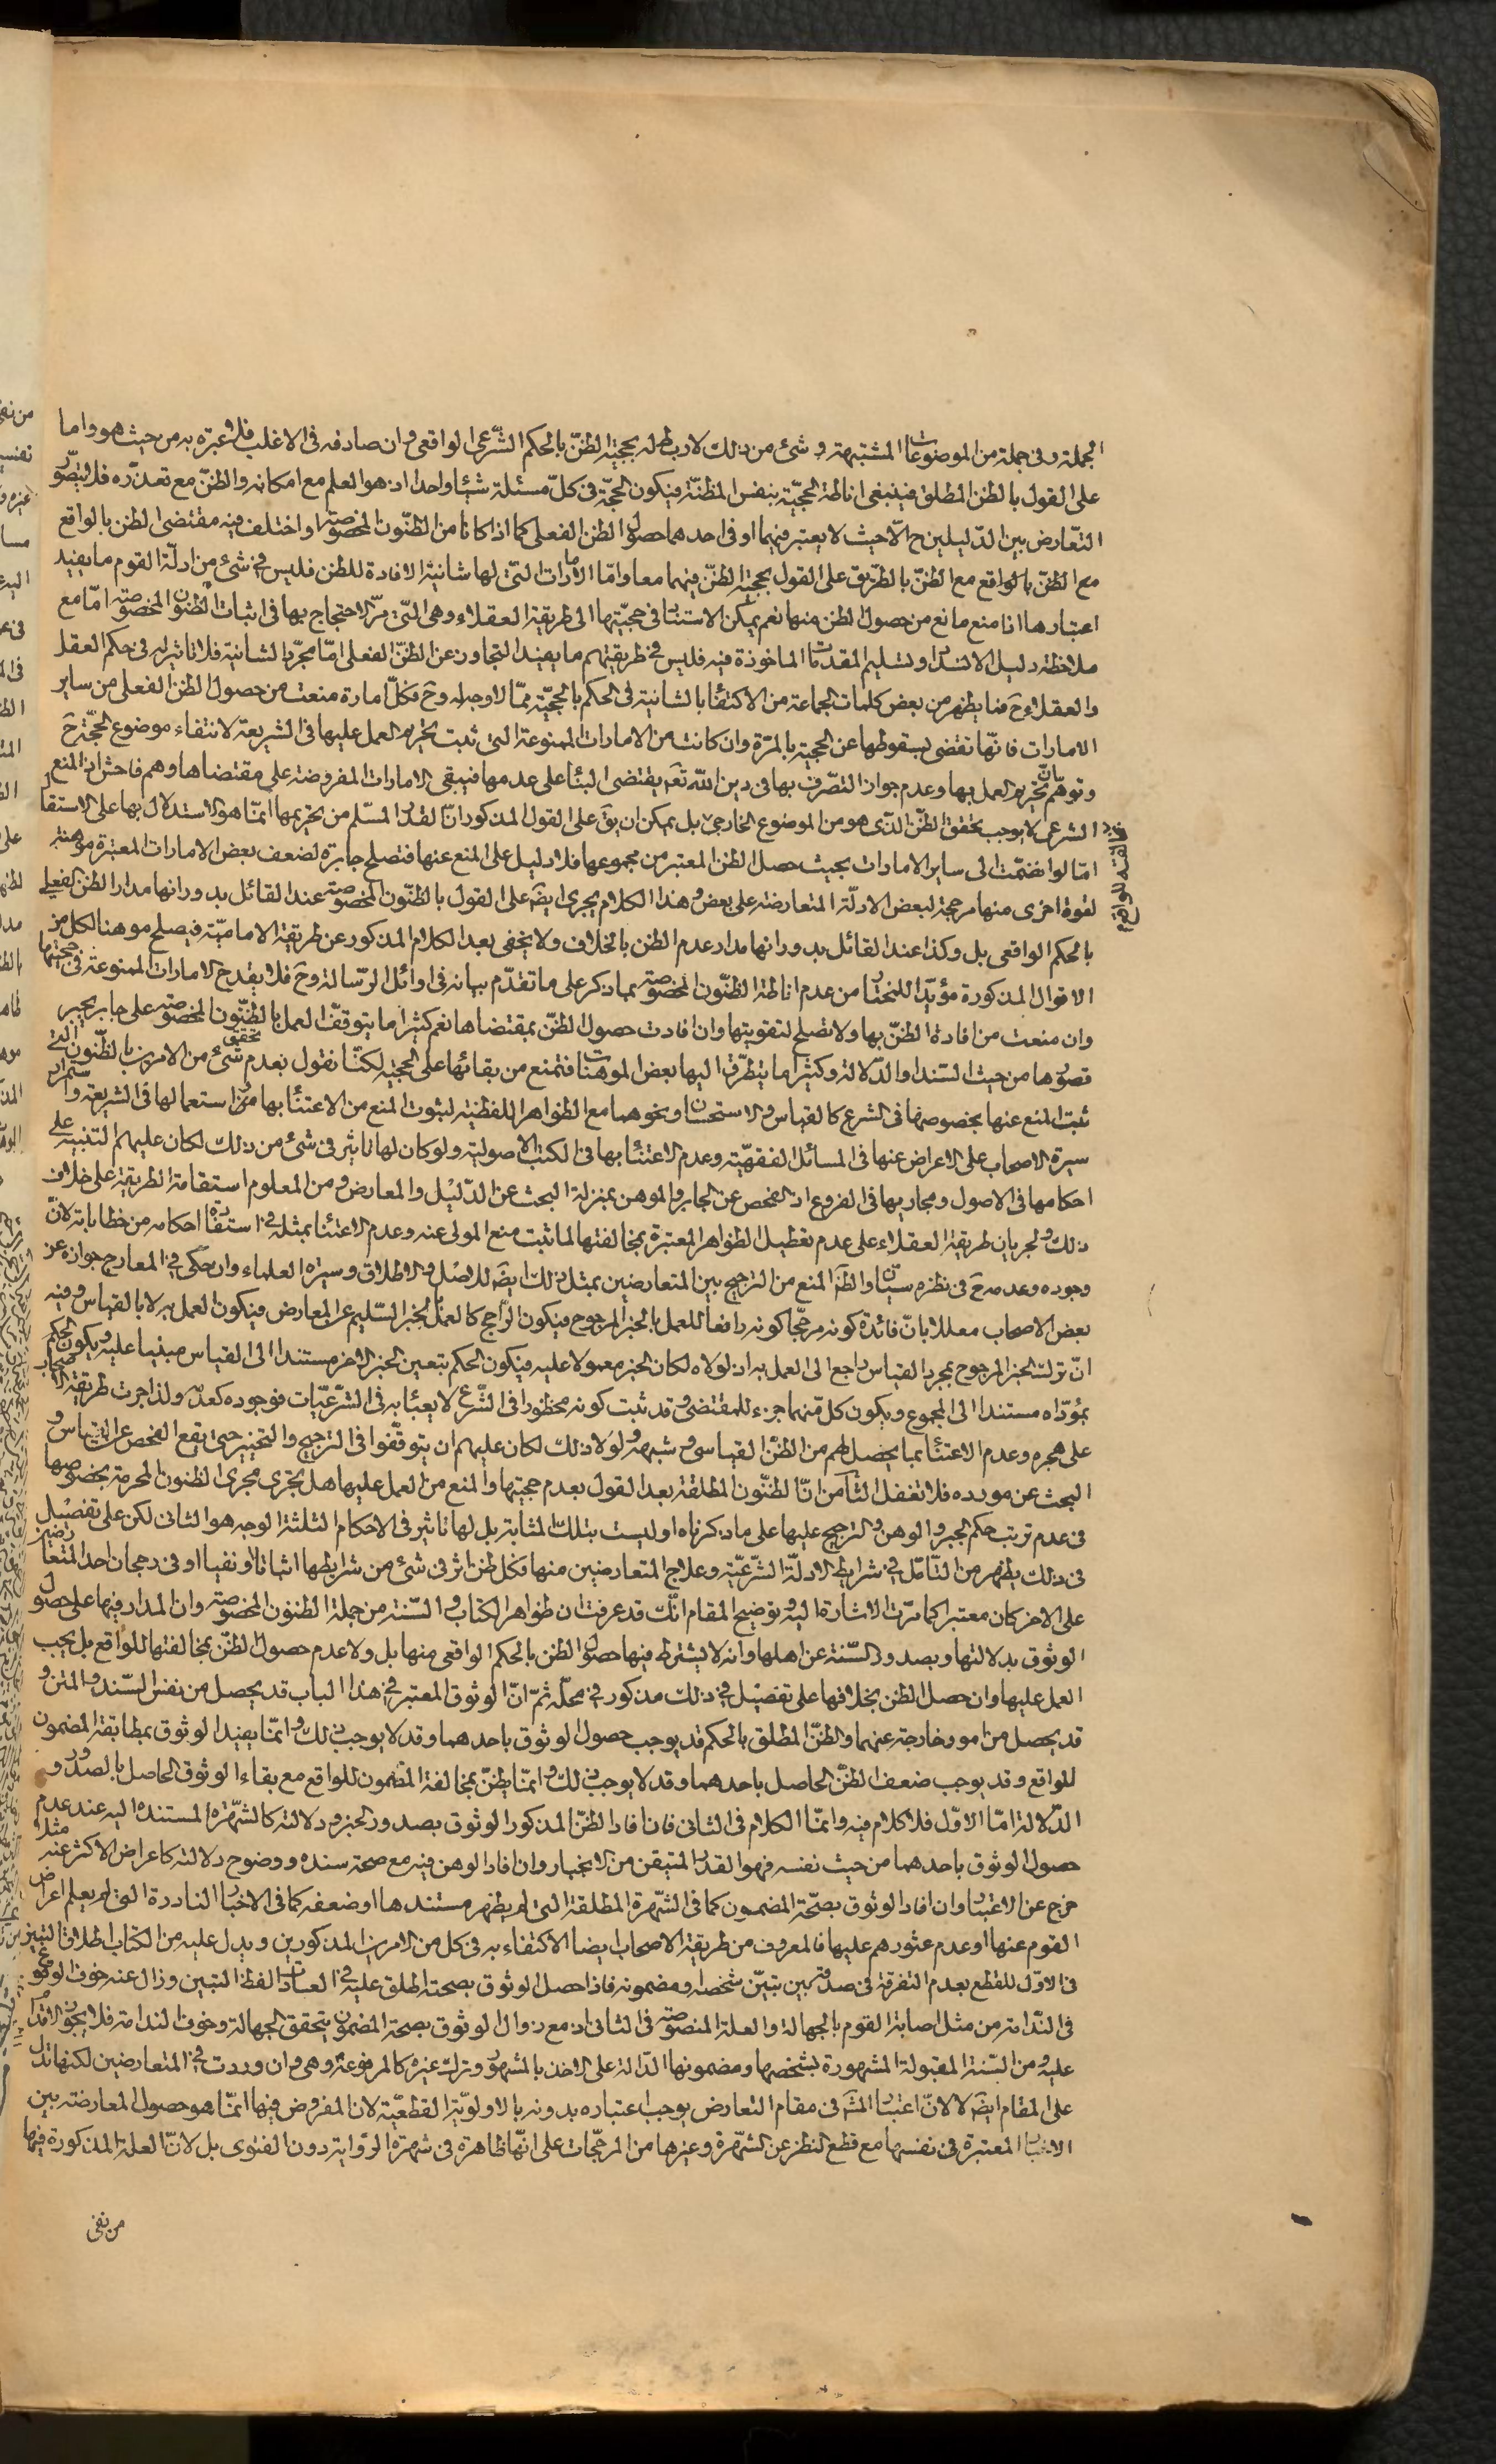 الجملة وفى جملة من الموضوعات المشتبهة وشئ من ذلك لا ربط له بحجية الظنّ بالحكم الشّرعى الواقعى وان صادفه فى الاغلب فلا عبرة به من حيث هو واما
على القول بالظن المطلق فينبغى اناطة الحجيّة بنفس المظنّة فيكون الحجّة فى كلّ مسئلة شيئا واحدا اذ هو العلم مع امكانه والظنّ مع تعذّره فلا يتصّور
التعّارض بين الدّليلين ح الّا حيث لا يعتبر فيهما او فى احدهما حصول الظن الفعلى كما اذا كانا من الظنّون المخصوصة او اختلف فيه مقتضى الظن بالواقع
مع الظنّ بالواقع مع الظنّ بالطّريق على القول بحجية الظنّ فيهما معا وامّا الامارات التّى لها شانية الافادة للظن فليس فى شئ من ادلّة القوم ما يفيد
اعتبارها اذا منع مانع من حصول الظن منها نعم يمكن الاستناد فى حجيّتها الى طريقة العقلاء وهى التّى مرّ الاحتجاج بها فى اثبات الظنون المخصوصة امّا مع
ملاحظة دليل الانسداد وتسليم المقدمات الماخوذة فيه فليس فى طريقتهم ما يفيد التجاوز عن الظنّ الفعلى امّا مجرّد الشانية فلا تاثير له فى حكم العقل
والعقلاء ح فما يظهر من بعض كلمات الجماعة من الاكتفاء بالشانية فى الحكم بالحجيّة ممّا لا وجه له وح فكلّ امارة منعت من حصول الظن الفعلى من ساير
الامارات فانّها تقضى بسقوطها عن الحجية بالمرّة وان كانت من الامارات الممنوعة التى ثبت تحريم العمل عليها فى الشريعة لانتفاء موضوع الحجّة ح
وتوهّم انّ تحريم العمل بها وعدم جواز التصّرف بها فى دين اللّه تعَ يقتضى البناء على عدمها فيبقى الامارات المفروضة على مقتضاها وهم فاحش اذ المنع
الشرعى لا يوجب تحقق الظنّ الذّى هو من الموضوع الخارجى بل يمكن ان يقَ على القول المذكور انّ القدر المسلّم من تحريمها انمّا هو الاستدلال بها على الاستقلال
امّا لو انضمّت الى ساير الامارات بحيث حصل الظن المعتبر من مجموعها فلا دليل على المنع عنها فتصلح جابرة لضعف بعض الامارات المعتبرة موهنة
لقوة اخرى منها مرجحة لبعض الادلّة المتعارضة على بعض وهذا الكلام يجرى ايضَ على القول بالظنّون المخصوصة عند القائل بدورانها مدار الظن الفعلى
بالحكم الواقعى بل وكذا عند القائل بدورانها مدار عدم الظن بالخلاف ولا يخفى بعد الكلام المذكور عن طريقة الاماميّة فيصلح موهنا لكل من
الاقوال المذكورة مؤيّدا للمختار من عدم اناطة الظنّون المخصوصة بما ذكر على ما تقدّم بيانه فى اوائل الرّسالة وح فلا يقدح الامارات الممنوعة فى حجيتها
وان منعت من افادة الظنّ بها ولا تصلح لتقويتها وان افادت حصول الظنّ بمقتضاها نعم كثيرا ما يتوقف العمل بالظنّون المخصوصة على جابر يجبر
قصورها من حيث السّند او الدّلالة وكثيرا ما يتطرّق اليها بعض الموهنات فتمنع من بقائها على الحجية لكنّا نقول بعدم تحقق شئ من الامرين بالظّنون التى
ثبت المنع عنها بخصوصها فى الشرع كالقياس والاستحسان ونحوهما مع الظواهر اللفظية لثبوت المنع من الاعتناء بها من استعمالها فى الشريعة واستمرار
سيرة الاصحاب على الاعراض عنها فى المسائل الفقهيّة وعدم الاعتناء بها فى الكتب الاصولية ولو كان لها تاثير فى شئ من ذلك لكان عليهم التنبيه على
احكامها فى الاصول ومجاريها فى الفروع اذ الفحص عن الجابر والموهن بمنزلة البحث عن الدّليل والمعارض ومن المعلوم استقامة الطريقة على خلاف
ذلك ولجريان طريقة العقلاء على عدم تعطيل الظواهر المعتبرة بمخالفتها لما ثبت منع المولى عنه وعدم الاعتناء بمثله فى استفادة احكامه من خطاباته لانّ
وجوده وعدمه ح فى نظره سيّان والظَ المنع من الترجيح بين المتعارضين بمثل ذلك ايضَ للاصل والاطلاق وسيرة العلماء وان حكى فى المعارج جوازه عن
بعض الاصحاب معللا بانّ فائدة كونه مرجّحا كونه دافعا للعمل بالخبر المرجوح فيكون الرّاجح كالعمل بالخبر السّليم عن المعارض فيكون العمل به لا بالقياس وفيه
انّ ترك الخبر المرجوح بمجرد القياس راجع الى العمل به اذ لولاه لكان الخبر معمولا عليه فيكون الحكم بتعيين الخبر الاخر مستندا الى القياس مبنيا عليه ويكون الحكم
بمؤدّاه مستندا الى المجموع ويكون كل منهما جزء للمقتضى وقد ثبت كونه محظورا فى الشّرع لا يعبأ به فى الشرّعيّات فوجوده كعدمه ولذا جرت طريقة الاصحاب
على هجره وعدم الاعتناء بما يحصل لهم من الظنّ القياسى وشبهه ولولا ذلك لكان عليهم ان يتوقّفوا فى الترجيح والتخيير حتى يقع الفحص عن القياس و
البحث عن مورده فلا تغفل الثامن انّ الظنّون المطلقة بعد القول بعدم حجيتها والمنع من العمل عليها هل يجرى مجرى الظنون المحرمة بخصوصها
فى عدم ترتب حكم الجبر والوهن والترجيح عليها على ما ذكرناه او ليست بتلك المثابة بل لها تاثير فى الاحكام الثلثة الوجه هو الثانى لكن على تفصيل
فى ذلك يظهر من التّامّل فى شرايط الادلّة الشّرعيّة وعلاج المتعارضين منها فكل ظن اثر فى شئ من شرايطها اثباتا او نفيا او فى رجحان احد المتعارضين
على الاخر كان معتبرا كما مرّت الاشارة اليه وتوضيح المقام انّك قد عرفت ان ظواهر الكتاب والسّنة من جملة الظنون المخصوصة وان المدار فيها على حصول
الوثوق بدلالتها وبصدور السّنة عن اهلها وانه لا يشترط فيها حصول الظن بالحكم الواقعى منها بل ولا عدم حصول الظنّ بمخالفتها للواقع بل يجب
العمل عليها وان حصل الظن بخلافها على تفصيل فى ذلك مذكور فى محلّه ثمّ انّ الوثوق المعتبر فى هذا الباب قد يحصل من نفس السّند والمتن و
قد يحصل من امور خارجة عنهما والظنّ المطلق بالحكم قد يوجب حصول الوثوق باحدهما وقد لا يوجب ذلك وانمّا يفيد الوثوق بمطابقة المضمون
للواقع وقد يوجب ضعف الظنّ الحاصل باحدهما وقد لا يوجب ذلك وانمّا يظنّ بمخالفة المضمون للواقع مع بقاء الوثوق الحاصل بالصدور و
الدّلالة امّا الاوّل فلا كلام فيه وانمّا الكلام فى الثانى فان افاد الظنّ المذكور الوثوق بصدور الخبر ودلالته كالشّهرة المستندة اليه عند عدم
حصول الوثوق باحدهما من حيث نفسه فهو القدر المتيقن من الانجبار وان افاد الوهن فيه مع صحة سنده ووضوح دلالته كاعراض الاكثر عنه مثلا
خرج عن الاعتبار وان افاد الوثوق بصحّة المضمون كما فى الشّهرة المطلقة التى لم يظهر مستندها او ضعفه كما فى الاخبار النادرة التى لم يعلم اعراض
القوم عنها او عدم عثورهم عليها فالمعروف من طريقة الاصحاب ايضا الاكتفاء به فى كل من الامرين المذكورين ويدل عليه من الكتاب اطلاق التبين
فى الاوّل للقطع بعدم التفرقة فى صدقه بين تبيّن شخصه ومضمونه فاذا حصل الوثوق بصحته اطلق عليه فى العبارات لفظ التبين وزال عنه خوف الوقوع
فى النّدامة من مثل اصابة القوم بالجهالة والعلة المنصوصة فى الثانى اذ مع زوال الوثوق بصحة المضمون يتحقق الجهالة وخوف الندامة فلا يجوز الاقدام
عليه ومن السّنة المقبولة المشهورة بشخصها ومضمونها الدّالة على الاخذ بالمشهور وترك غيره كالمرفوعة وهى وان وردت فى المتعارضين لكنها تدل
على المقام ايضَ لا لانّ اعتبار الشهَ فى مقام التعارض يوجب اعتباره بدونه بالاولويّة القطعيّة لان المفروض فيها انمّا هو حصول المعارضة بين
الاخبار المعتبرة فى نفسها مع قطع النظر عن الشّهرة وغيرها من المرجّحات على انّها ظاهرة فى شهرة الرّواية دون الفتوى بل لانّ العلة المذكورة فيها
من نفى